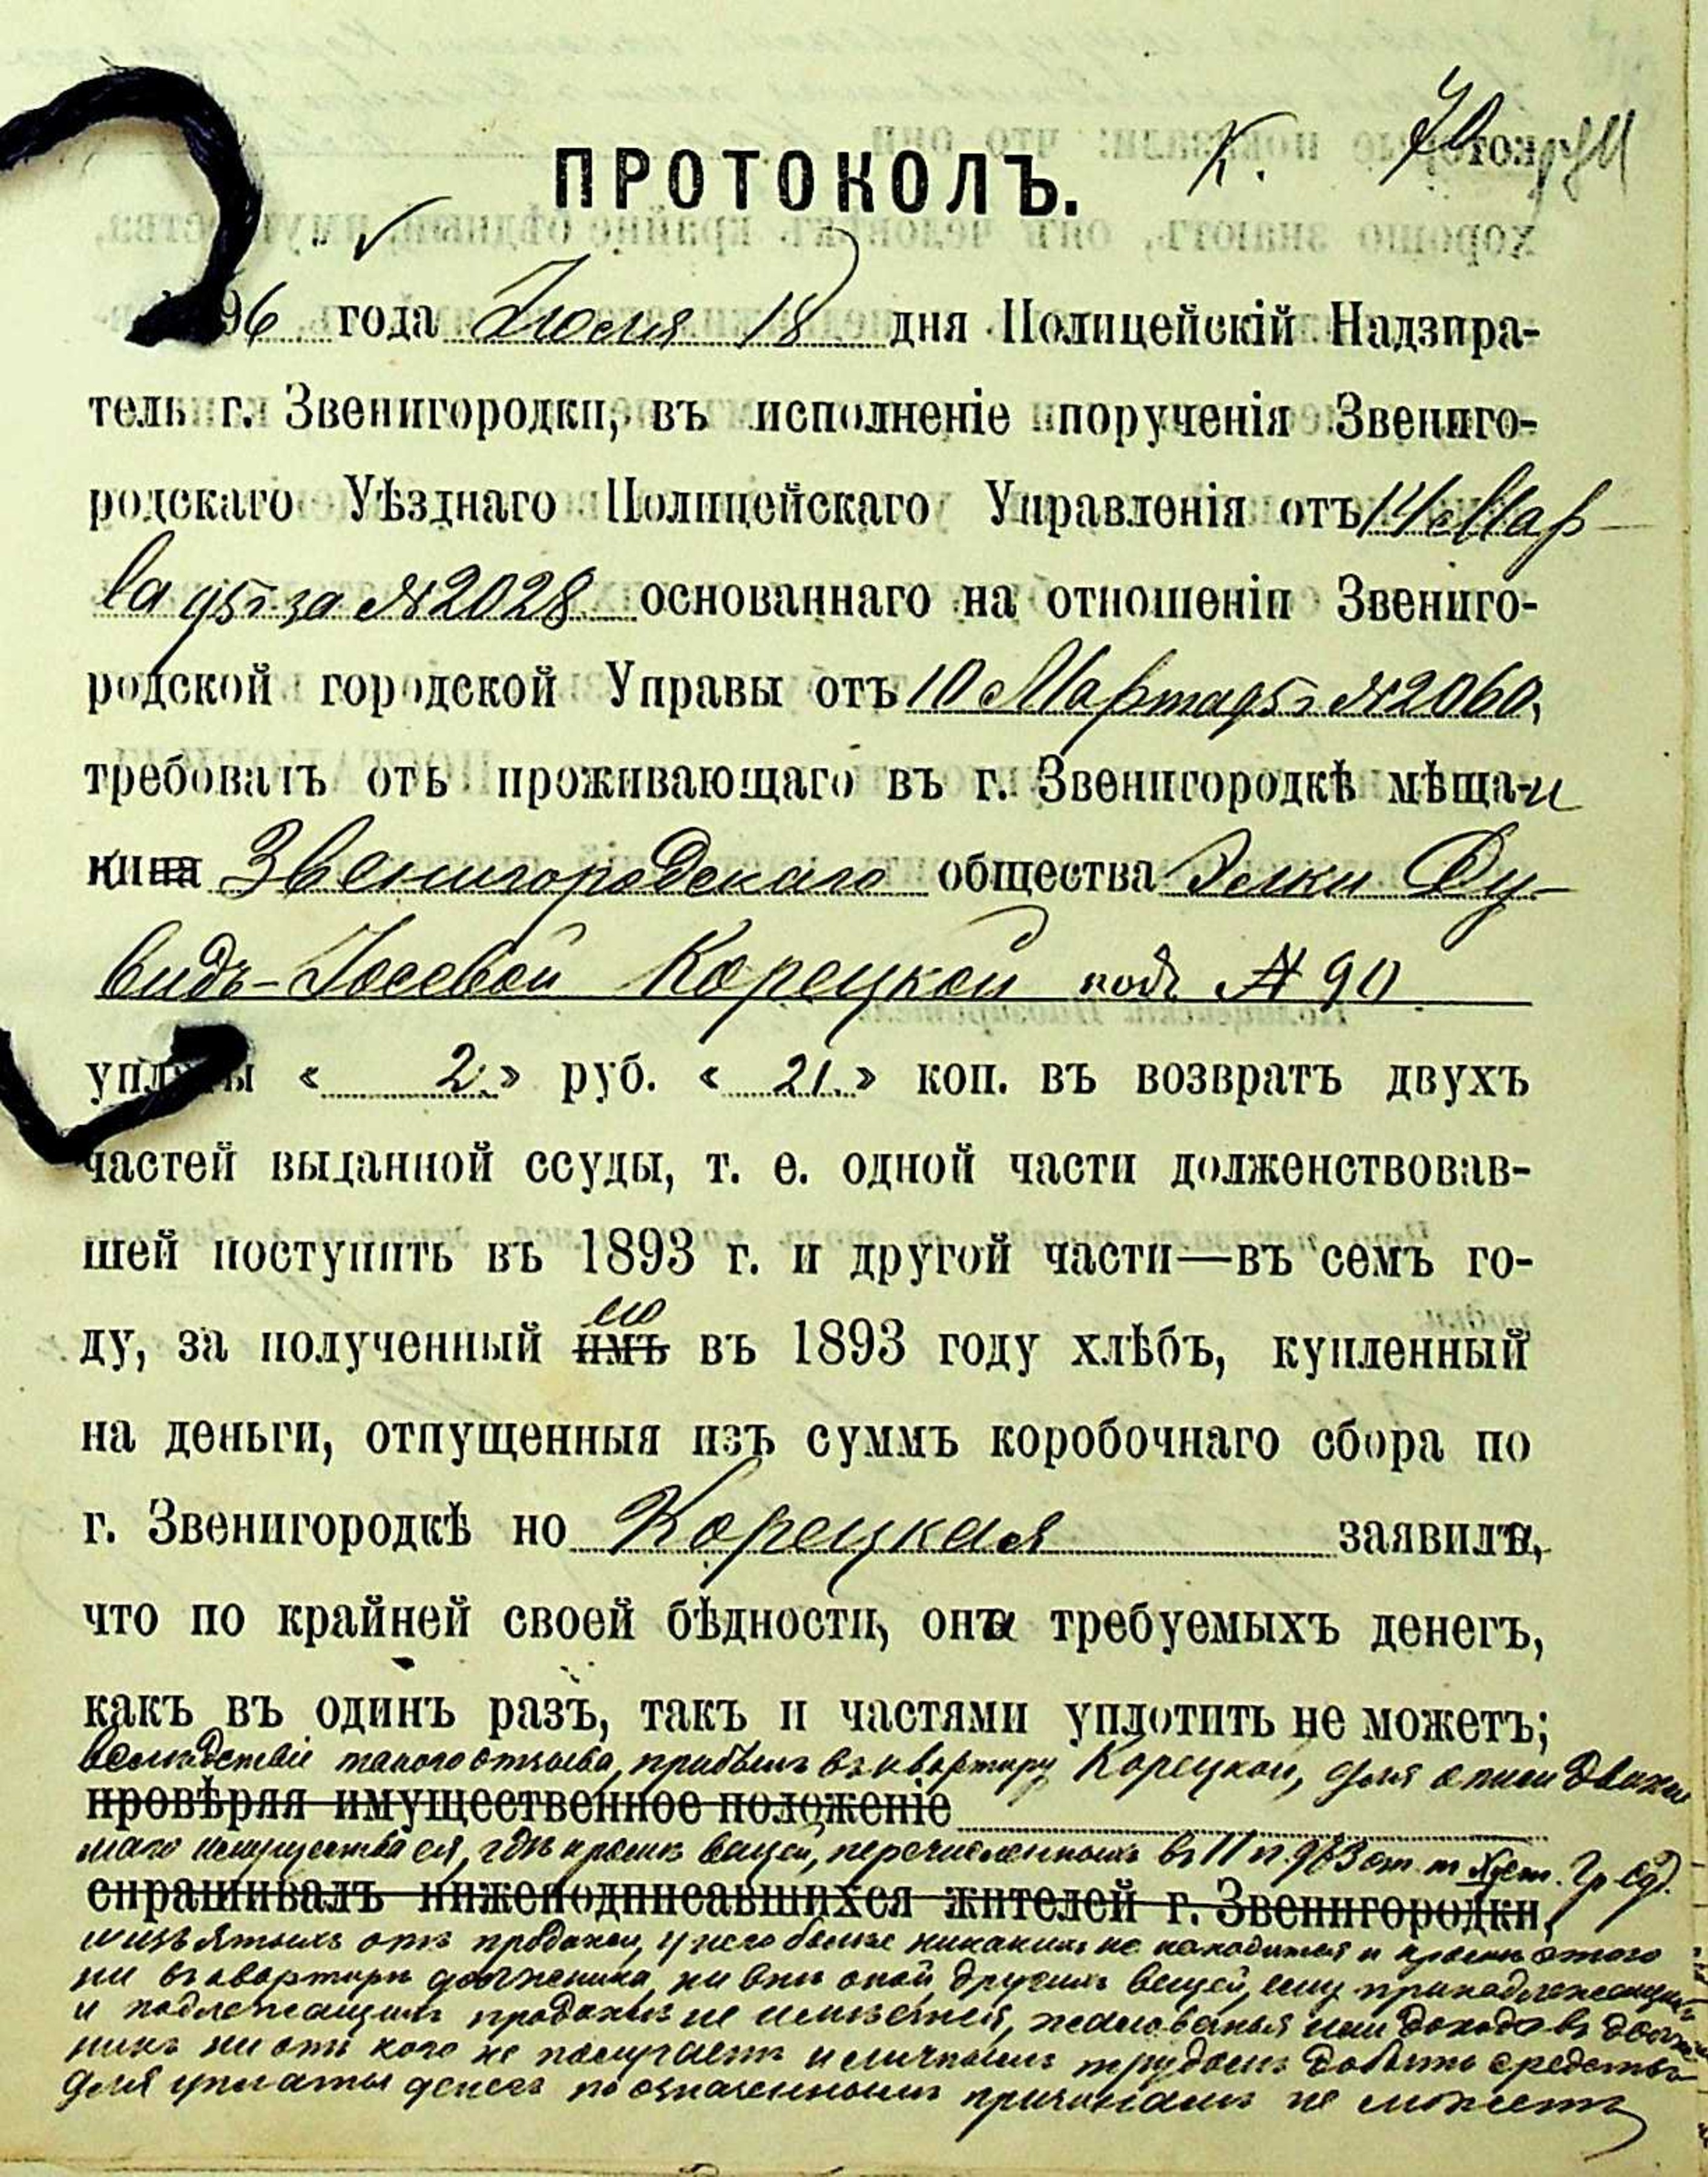 К. 70
ПРОТОКОЛЪ.
96 года Июля 18 дня Полицейскій Надзира-
тель г. Звенигородки, въ исполненіе порученія Звениго-
родскаго Уѣзднаго Полицейскаго Управленія отъ 14 Мар-
та 95 г. за №2028 основаннаго на отношеніи Звениго-
родской городской Управы отъ 10 Марта 95 г №2060,
требовалъ отъ проживающаго въ г. Звенигородкѣ мѣща-н
кина Звенигородскаго общества Элки Ду-
видъ-Іосевой Корецкой подъ № 90
уплаты « 2. » руб. « 21. » коп. въ возвратъ двухъ
частей выданной ссуды, т. е. одной части долженствовав-
шей поступить въ 1893 г. и другой части—въ семъ го-
ею
ду, за полученный имъ въ 1893 году хлѣбъ, купленный
на деньги, отпущенныя изъ суммъ коробочнаго сбора по
г. Звенигородкѣ но Корецкая заявила,
что по крайней своей бѣдности, она требуемыхъ денегъ,
какъ въ одинъ разъ, такъ и частями уплотить не можетъ;
вслѣдствіе такого отзыва, прибывъ въ квартиру Корецкой, для описи движи
провѣряя имущественное положеніе
маго имущества ея, гдѣ кромѣ вещей, перечисленныхъ въ II п. 973 ст. Уст. Гр. Суд.
спрашивалъ нижеподписавшихся жителей г. Звенигородки,
и изъятыхъ отъ продажи, у него больше никакихъ не находится и кромѣ этого
ни въ квартирѣ должника, ни внѣ оной, другихъ вещей, ему принадлежащихъ
и подлежащихъ продажѣ не имѣется, жалованья или доходовъ долж-
никъ ни отъ кого не получаетъ и личнымъ трудомъ добыть средствъ
для уплаты денегъ по означеннымъ причинамъ не можетъ